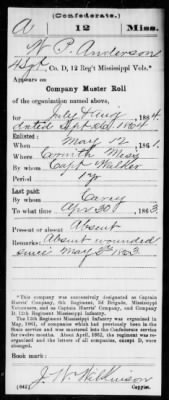 (Confederate.)
A | 12 | Miss.
W. P. Anderson
4 Sgt, Co. D, 12 Reg't Mississippi Vols.*
Appears on
Company Muster Roll
of the organization named above,
for July & Aug, 1864.
dated Sept 1864
Enlisted:
When May 12, 1861.
Where Corinth Miss
By whom Capt Walker
Period 1 yr
Last paid:
By whom
To what time Apr 30, 1863.
Present or absent Absent
Remarks: Absent wounded
since May 3d 1863.
*This company was successively designated as Captain
Harris' Company, 6th Regiment, 2d Brigade, Mississippi
Volunteers, and as Captain Harris' Company, and Company
D, 12th Regiment Mississippi Infantry.
The 12th Regiment Mississippi Infantry was organized in
May, 1861, of companies which had previously been in the
State service and was mustered into the Confederate service
for twelve months. About April, 1862, the regiment was re-
organized and the letters of all the companies, except D, were
changed.
Book mark:
J. W. Wilkinson
(642) Copyist.